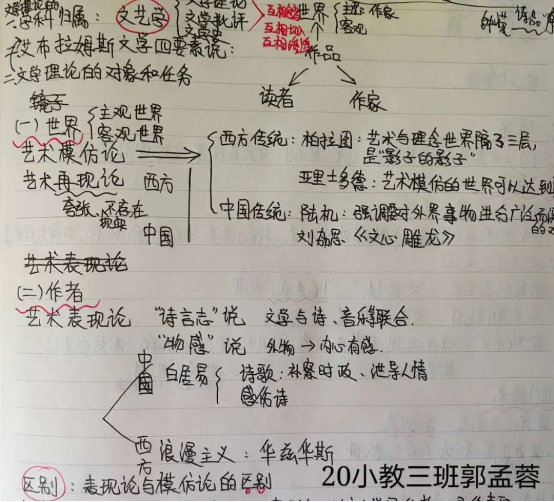 学科归属：文艺学 文学批评 互相 世界 主观 作家
文学史 互相 客观
艾布拉姆斯文学四要素说： 作品
二文学理论的对象和任务 读者 作家
镜子
(一)世界 主观世界
客观世界
艺术模仿论 西方传统：柏拉图：艺术与理念世界隔了三层，
是“影子的影子”
艺术再现论 西方 亚里士多德：艺术模仿的世界可以达到
夸张、不存在
现实
中国 中国传统：陆机：强调要对外界事物进行广泛而
刘勰、《文心雕龙》
艺术表现论
(二)作者
艺术表现论 “诗言志”说 文学与诗、音乐联合.
“物感”说 外物→内心有感.
中国 白居易 诗歌：补察时政、泄导人情
感伤诗
西方 浪漫主义：华兹华斯
区别：表现论与模仿论的区别
20小教三班郭孟蓉